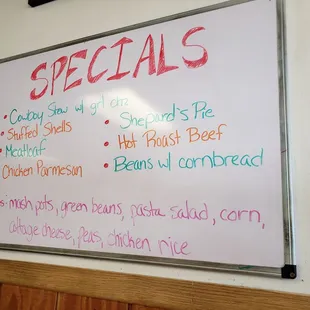 SPECIALS
• Cowboy Stew w/ grl chz
• Stuffed Shells
• Meatleaf
Chicken Parmesan
• Shepard's Pie
• Hot Roast Beef
• Beans w/ cornbread
mash pots, green beans, pasta salad, corn,
cottage cheese, peas, chicken rice